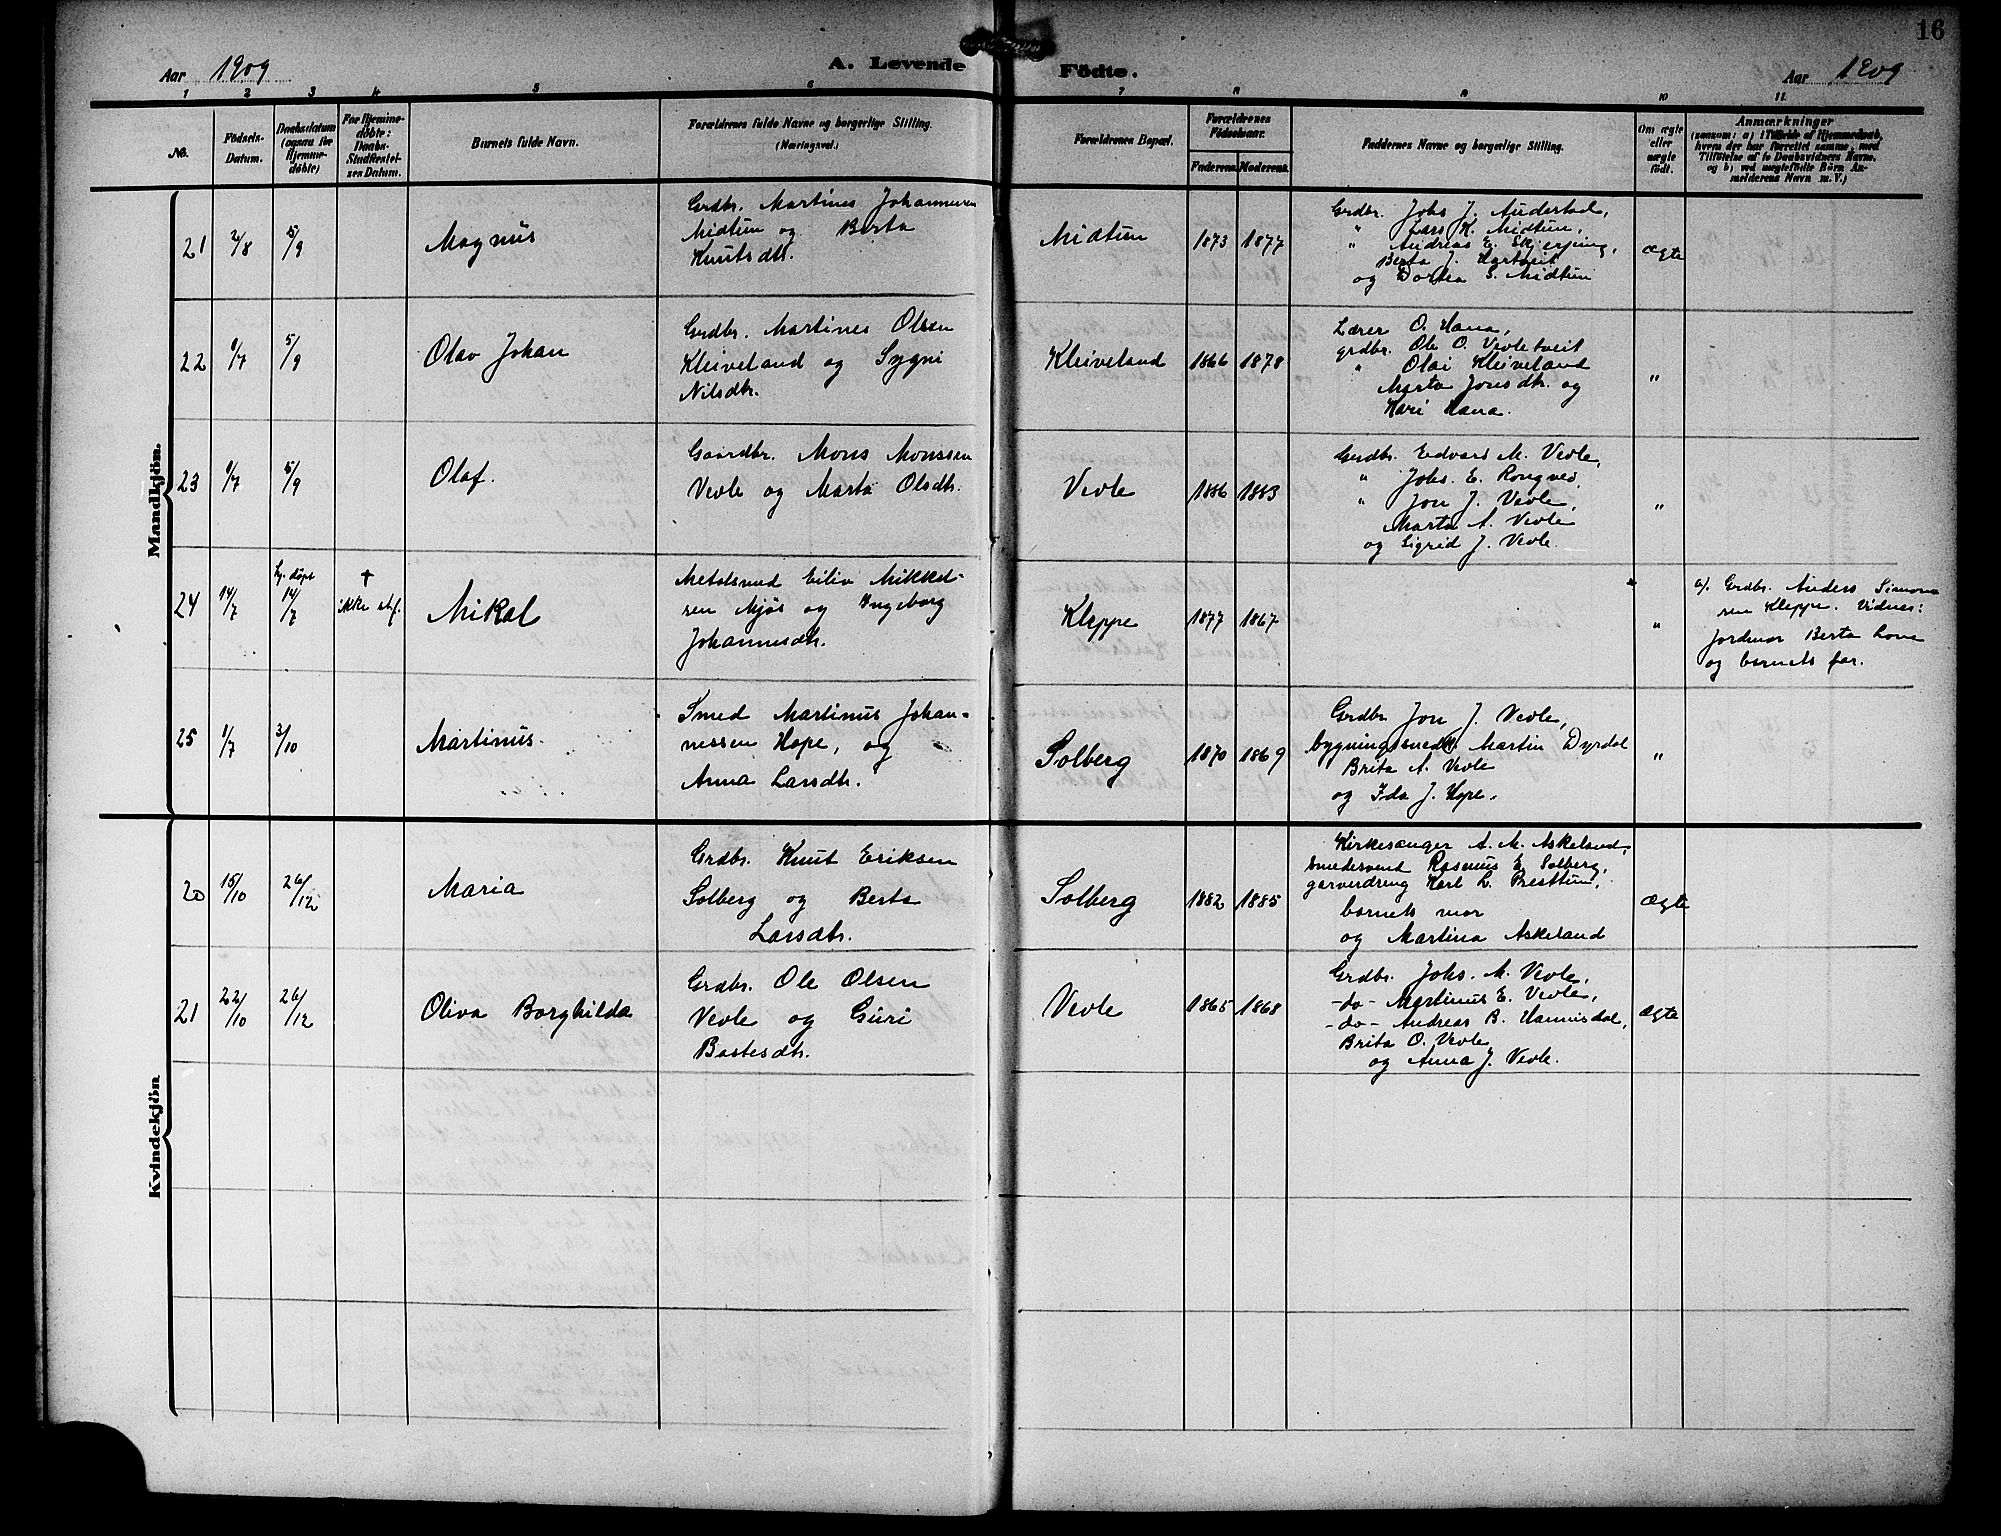 16
Aar 1909
A. Levende Födte.
Aar 1909
1 2 3 4 5 6 7 8 9 10 11.
No.
Födsels-
Datum.
Daabsdatum
(ogsaa for
Hjemme-
döbte)
For Hjemme-
döbte:
Daabs-
Stadfæstel-
ses Datum.
Barnets fulde Navn.
Forældrenes fulde Navne og borgerlige Stilling.
(Næringsvei.)
Forældrenes Bopæl.
Forældrenes
Födselsaar.
Faderens. Moderens.
Faddernes Navne og borgerlige Stilling.
Om ægte
eller
uægte
födt.
Anmærkninger
(saasom: a) i Tilfælde af Hjemmedaab,
hvem der har forrettet samme, med
Tilföielse af to Daabsvidners Navne,
og b) ved uægtefödte Börn An-
melderens Navn m. V.)
Mandkjön.
21 2/8 5/9 Magnus
Grdbr. Martines Johannesen
Midtun og Berta
Knutsdtr.
Midtun 1873 1877
Grdbr. Johs J. Auderstad,
" Lars K. Midtun,
" Andreas E. Skjerping,
Berta J. Hartveit
og Dortea S. Midtun
ægte
22 9/7 5/9 Olav Johan
Grdbr. Martines Olsen
Kleiveland og Sygni
Nilsdtr.
Kleiveland 1866 1878
Lærer O. Hana,
grdbr. Ole O. Vevletveit
" Olai Kleiveland
Marta Jonsdtr. og
Kari Hana.
"
23 9/7 5/9 Olaf.
Gaardbr. Mons Monssen
Vevle og Marta Olsdtr.
Vevle 1886 1883
Grdbr. Edvard M. Vevle,
" Johs. E. Rongved,
" Jon J. Vevle,
Marta A. Vevle
og Sigrid J. Vevle.
"
24 14/7 hj. döpt 14/7 † ikke stf. Mikal
Metalsmed Eiliv Mikkel-
sen Mjøs og Ingeborg
Johannesdtr.
Kleppe 1877 1867
"
a/. Grdbr. Anders Simon
sen Kleppe. Vidner:
Jordmor Berta Lone
og barnets far.
25 1/7 3/10 Martinus.
Smed Martinus Johan-
nessen Hope, og
Anna Larsdtr.
Solberg 1870 1869
Grdbr Jon J. Vevle,
bygningssnedk. Martin Dyrdal
Brita A. Vevle
og Ida J. Hope.
"
Kvindekjön
20 15/10 26/12 Maria
Grdbr. Knut Eriksen
Solberg og Berta
Larsdtr.
Solberg 1882 1885
Kirkesanger A. M. Askeland,
smedesvend Rasmus E. Solberg,
garverdreng Karl L. Presttun,
barnets mor
og Martina Askeland
Ægte
21 22/10 26/12 Oliva Borghilda
Grdbr. Ole Olsen
Vevle og Guri
Bastesdtr.
Vevle 1865 1868
Grdbr. Johs. M. Vevle,
-do- Martinus E. Vevle,
-do- Andreas B. Hannisdal,
Brita O. Vevle
og Anna J. Vevle.
ægte